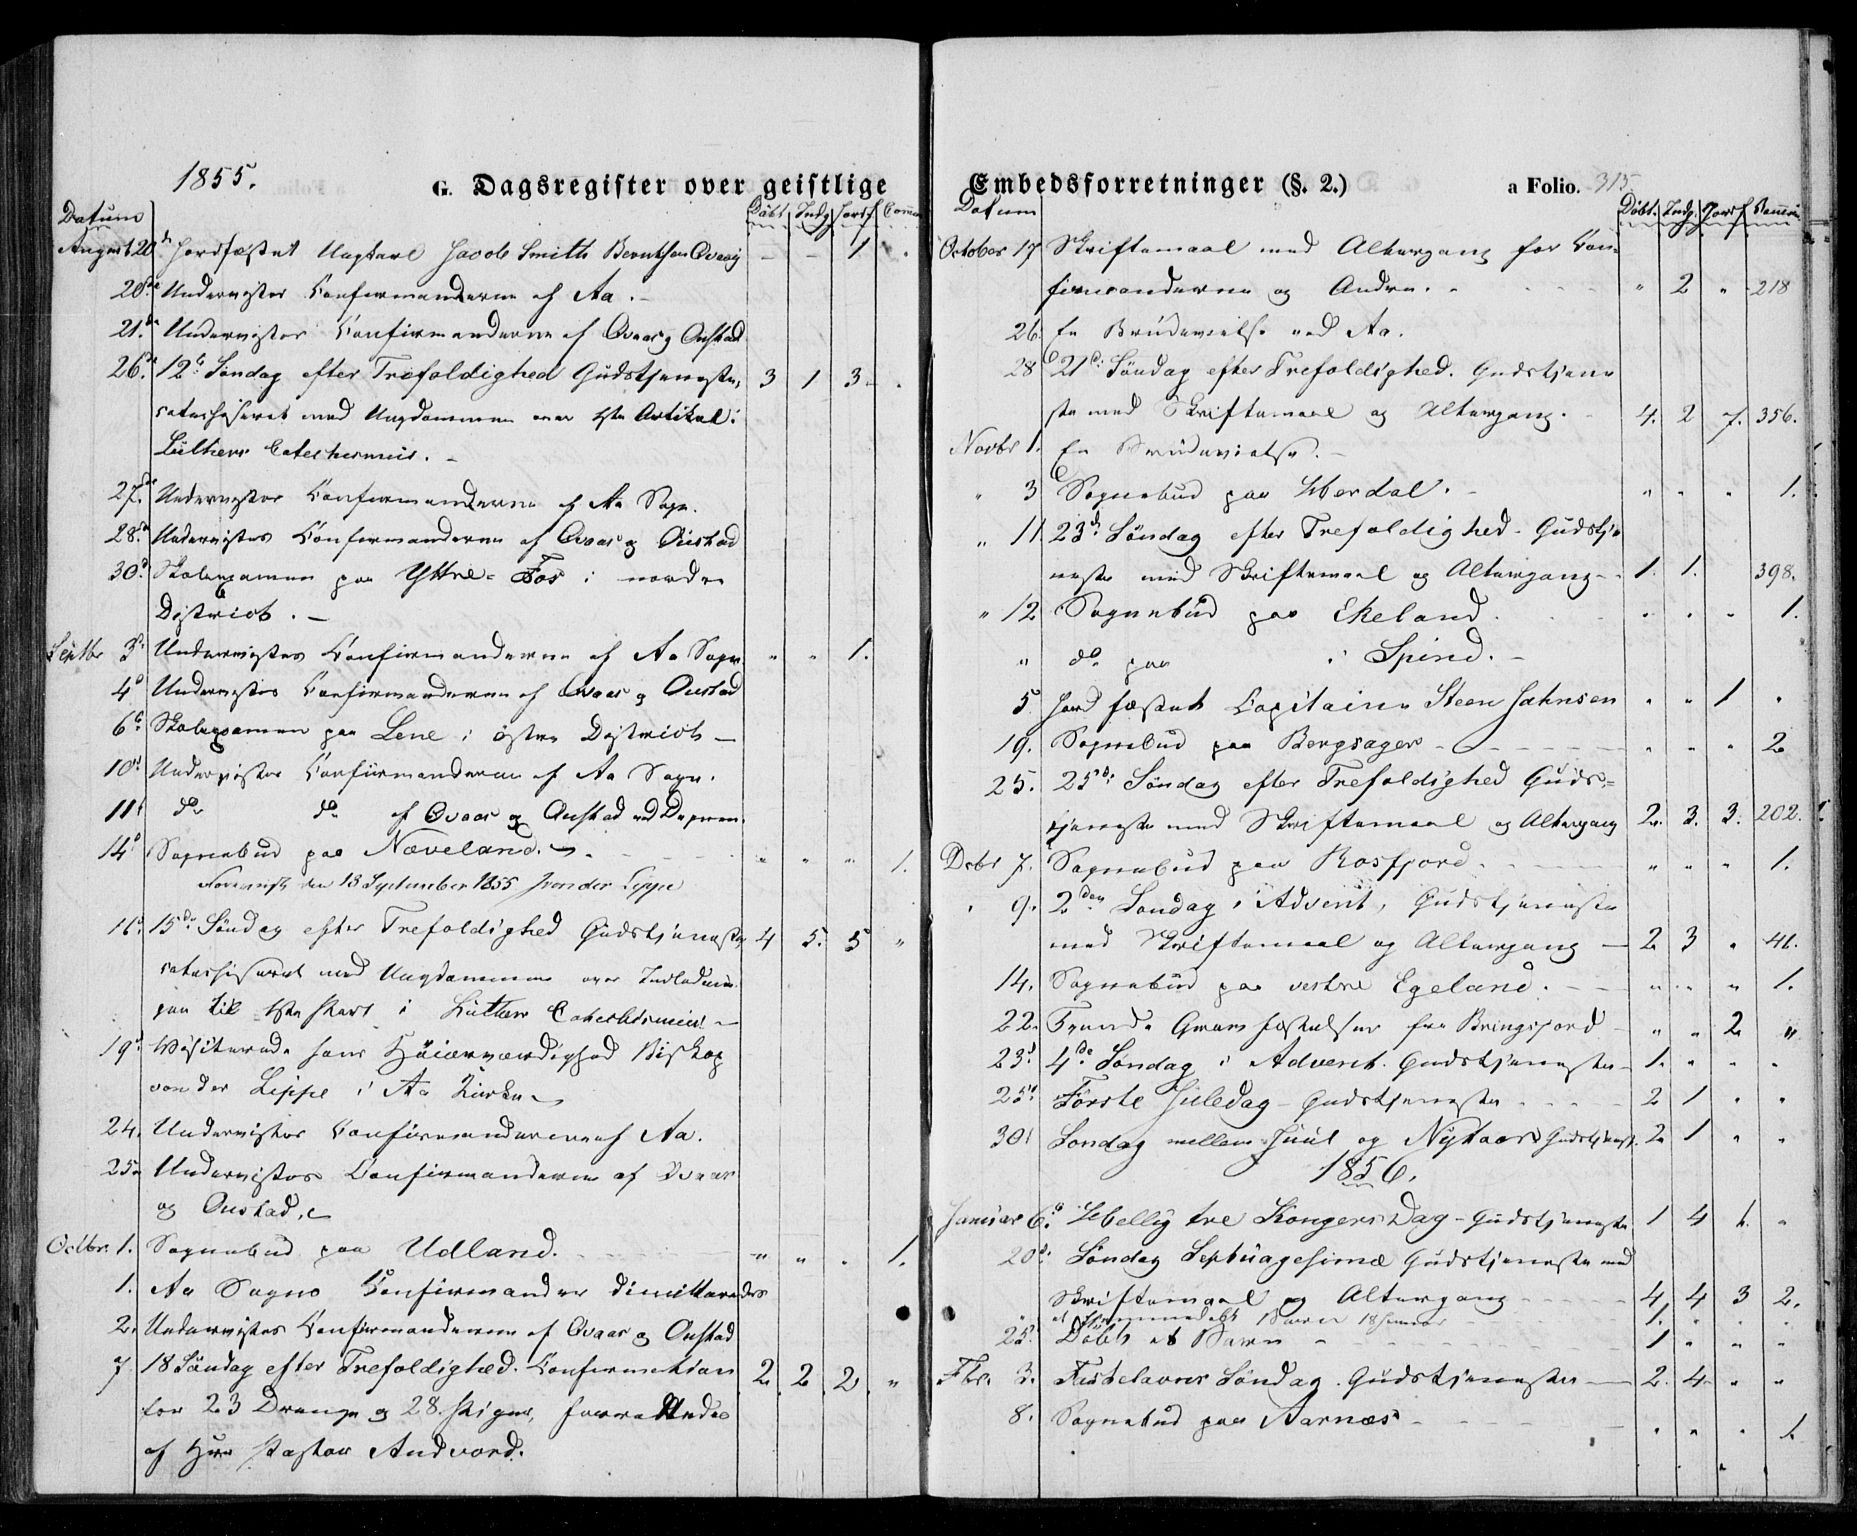 1855.
G. Dagsregister over geistlige
Datum Döbt. Indg. Jordf. Comm
August 20 Jordfæstet Ungkarl Jacob Smith Berntsen Qvaas — — 1
20de Undervistes Confirmanderne af Aa. —
21de Undervistes Confirmanderne af Qvaas og Austad
26de 12te Søndag efter Trefoldighed Gudstjeneste, 3 1 3
catechiseret med Ungdommen over 1ste Artikel i
Luthers Catechismus. —
27de Undervistes Confirmanderne af Aa Sogn.
28de Undervistes Confirmanderne af Qvaas og Austad
30d Skolexamen paa Yttre-Fos i nordre
District. —
Septbr 3d Undervistes Confirmanderne af Aa Sogn " " 1.
4d Undervistes Confirmanderne af Qvaas og Austad
6d Skolexamen paa Lene i østre District —
10d Undervistes Confirmanderne af Aa Sogn.
11d do do af Qvaas og Austad ved
14d Sognebud paa Næveland. " " " 1.
den 18 September 1855 von der Lippe
16d 15de Søndag efter Trefoldighed Gudstjeneste 4 5. 5 "
catechiseret med Ungdommen over
til 1ste Part i Luthers Catechismus —
19d Visiterede hans Høiærværdighed Biskop
von der Lippe i Aa Kirke
24. Undervistes Confirmanderne af Aa.
25. Undervistes Confirmanderne af Qvaas
og Austad.
Octbr. 1. Sognebud paa Udland. " " . 1.
1. Aa Sogns Confirmander dimitteredes
2. Undervistes Confirmanderne af Qvaas og Austad
7. 18 Søndag efter Trefoldighed. Confirmation 2. 2 2 "
for 23 Drenge og 28 Piger, forrettedes
af Herr Pastor Andvord.
Embedsforretninger (§. 2.)
a Folio. 315
Datum Döbt. Indg. Jordf. Comm
October 17 Skriftemaal med Altergang for Con-
firmanderne og Andre. " 2 " 218
26. En Brudevielse ved Aa.
28 21d Søndag efter Trefoldighed. Gudstjene
ste med Skriftemaal og Altergang. 4. 2 7. 356.
Novbr 1. En Brudevielse. —
" 3 Sognebud paa Uberdal. " " " 1.
" 11. 23d Søndag efter Trefoldighed - Gudstje
neste med Skriftemaal og Altergang 1. 1. 398.
" 12 Sognebud paa Ekeland. " " " 1.
" do paa i Spind. —
5 Jordfæstet Capitaine Steen Jahnsen " " 1 "
19. Sognebud paa Bergsager " " " 2
25. 25d Søndag efter Trefoldighed Guds-
tjeneste med Skriftemaal og Altergang 2. 3. 3. 202.
Decbr 7. Sognebud paa Rosfjord " " " 1.
" 9. 2den Søndag i Advent, Gudstjeneste
med Skriftemaal og Altergang — 2 3 " 41.
14. Sognebud paa vestre Egeland. " " " 1.
22. Tvende Grav fæstelser fra Bringsfjord " " 2 "
23d 4de Søndag i Advent. Gudstjeneste 1. " " "
25d Förste Juledag - Gudstjeneste 2 1 " "
30d Søndag mellem Juul og Nytaar Gudstjenest. 2. 1 " "
1856.
Januar 6d Hellig tre Kongers Dag - Gudstjeneste 1 4 1. "
20d Søndag Septuagesimæ Gudstjeneste med
Skriftemaal og Altergang 4 4 3 2.
" et hjemmedøbt Barn 18 Januar 1. " " "
25d Døbt et Barn 1 " " "
Fbr. 3. Fastelavns Søndag. Gudstjeneste 2. 4. " "
8. Sognebud paa Aarnæs " " " 1.